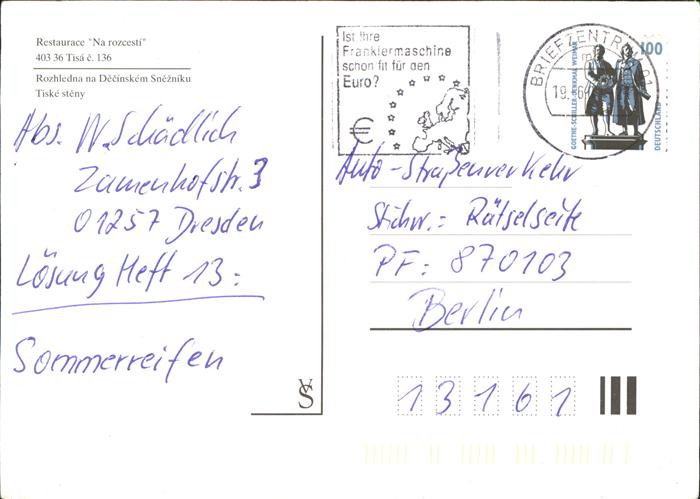 Restaurace "Na rozcestí"
403 36 Tisá č. 136
Rozhledna na Děčínském Sněžníku
Tiské stěny
Abs. W. Schädlich
Zamenhofstr. 3
01257 Dresden
Lösung Heft 13:
Sommerreifen
Ist Ihre
Frankiermaschine
schon fit für den
Euro?
€
BRIEFZENTRUM 01
100
GOETHE-SCHILLER-DENKMAL WEIMAR
DEUTSCHLAND
Auto-Straßenverkehr
Stichw.: Rätselseite
PF: 870103
Berlin
13161